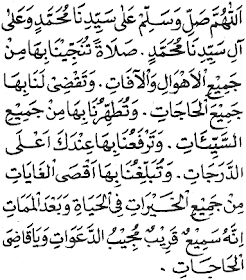 اَللّٰهُمَّ صَلِّ وَسَلِّمْ عَلٰى سَيِّدِنَا مُحَمَّدٍ وَعَلٰى
آلِ سَيِّدِنَا مُحَمَّدٍ . صَلَاةً تُنْجِيْنَا بِهَا مِنْ
جَمِيْعِ الْأَهْوَالِ وَالْآفَاتِ . وَتَقْضِىْ لَنَا بِهَا
جَمِيْعَ الْحَاجَاتِ . وَتُطَهِّرُنَا بِهَا مِنْ جَمِيْعِ
السَّيِّئَاتِ . وَتَرْفَعُنَا بِهَا عِنْدَكَ اَعْلَى
الدَّرَجَاتِ . وَتُبَلِّغُنَا بِهَا اَقْصَى الْغَايَاتِ
مِنْ جَمِيْعِ الْخَيْرَاتِ فِى الْحَيَاةِ وَبَعْدَ الْمَمَاتِ
اِنَّهُ سَمِيْعٌ قَرِيْبٌ مُجِيْبُ الدَّعَوَاتِ وَيَا قَاضِىَ
الْحَاجَاتِ .